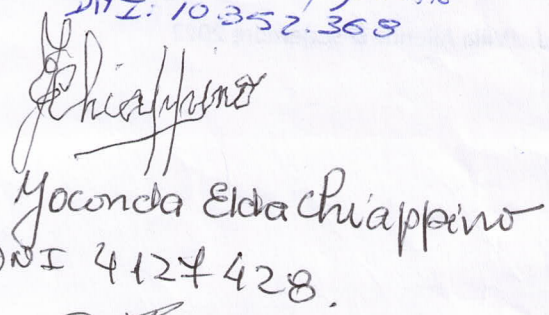 DNI: 10.352.368
Chiappino
Yoconda Elda Chiappino
DNI 4127428.